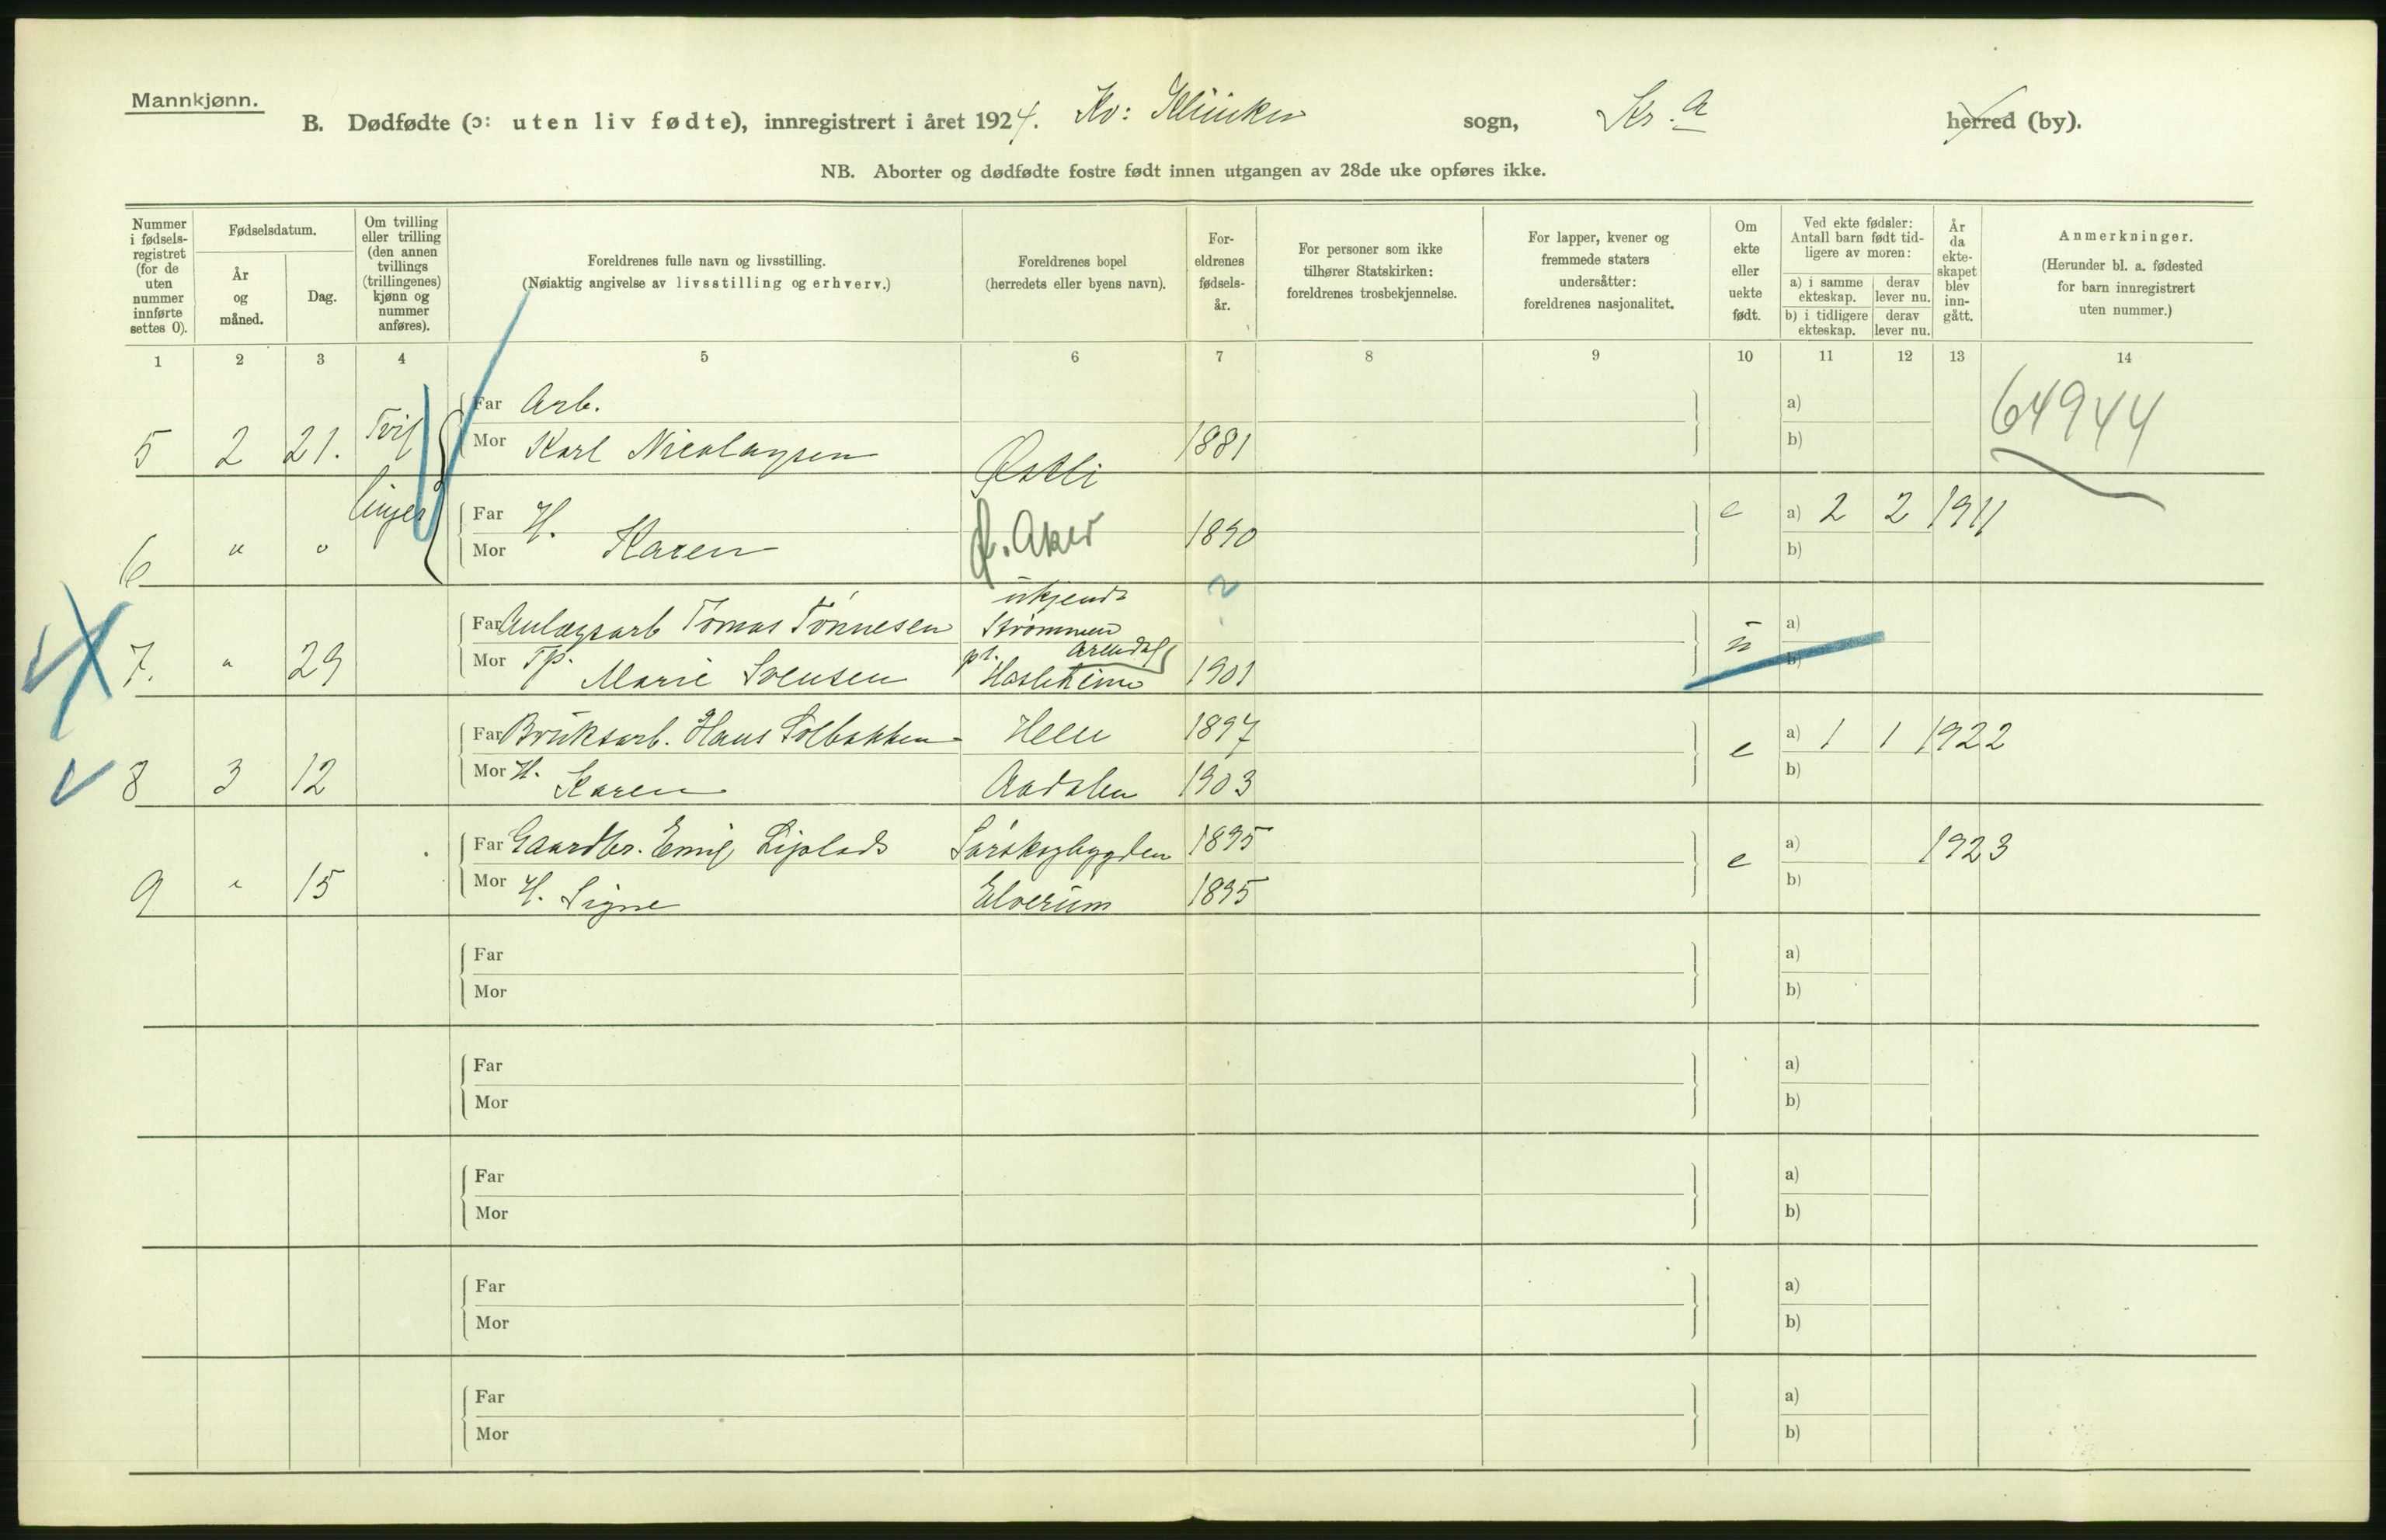 Mannkjønn.
B. Dødfødte (ɔ: uten liv fødte), innregistrert i året 1924. Kv: Kliniken sogn, Kr.a herred (by).
NB. Aborter og dødfødte fostre født innen utgangen av 28de uke opføres ikke.
Nummer i fødselsregistret (for de uten nummer innførte settes 0).
Fødselsdatum.
År og måned.
Dag.
Om tvilling eller trilling (den annen tvillings (trillingenes) kjønn og nummer anføres).
Foreldrenes fulle navn og livsstilling.
(Nøiaktig angivelse av livsstilling og erhverv.)
Foreldrenes bopel
(herredets eller byens navn).
Foreldrenes fødselsår.
For personer som ikke tilhører Statskirken: foreldrenes trosbekjennelse.
For lapper, kvener og fremmede staters undersåtter: foreldrenes nasjonalitet.
Om ekte eller uekte født.
Ved ekte fødsler: Antall barn født tidligere av moren:
a) i samme ekteskap. derav lever nu.
b) i tidligere ekteskap. derav lever nu.
År da ekteskapet blev inngått.
Anmerkninger.
(Herunder bl. a. fødested for barn innregistrert uten nummer.)
1 2 3 4 5 6 7 8 9 10 11 12 13 14
Far Arb. a) 64944
5 2 21. Tvil Mor Karl Nicolaysen Østli 1881 b)
linger Far H. e a) 2 2 1911
6 " " Mor Karen Ø. Aker 1890 b)
ukjendt ?
Far Anlægsarb Tomas Tönnesen Strömmen u a)
pt. Arendal
7. " 29 Mor TP. Marie Svensen Hasleheim 1901 b)
Far Bruksarb. Hans Solbakken Hen 1897 e a) 1 1 1922
8 3 12 Mor H. Karen Aadalen 1903 b)
Far Gaardbr. Emil Sörskogbygden 1895 e a) 1923
9 " 15 Mor H. Signe Elverum 1895 b)
Far a)
Mor b)
Far a)
Mor b)
Far a)
Mor b)
Far a)
Mor b)
Far a)
Mor b)